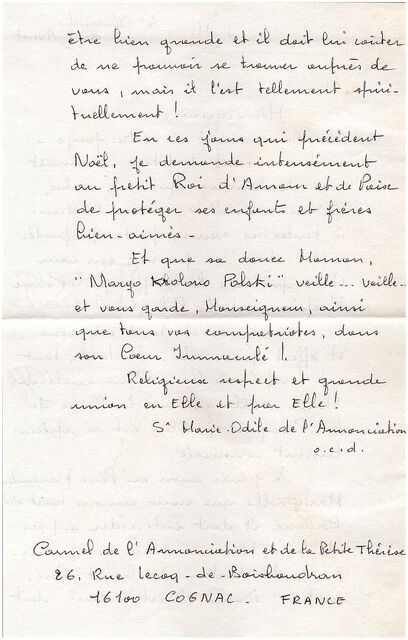 être bien grande et il doit lui coûter
de ne pouvoir se trouver auprès de
vous, mais il l'est tellement spiri-
tuellement !
En ces jours qui précèdent
Noël, je demande intensément
au petit Roi d'Amour et de Paix
de protéger ses enfants et frères
bien-aimés.
Et que sa douce Maman,
"Maryo Krolowo Polski" veille... veille...
et vous garde, Monseigneur, ainsi
que tous vos compatriotes, dans
son Cœur Immaculé !
Religieux respect et grande
union en Elle et par Elle !
Sr Marie-Odile de l'Annonciation
o.c.d.
Carmel de l'Annonciation et de la Petite Thérèse
26, Rue Lecoq-de-Boishaudran
16100 COGNAC. FRANCE